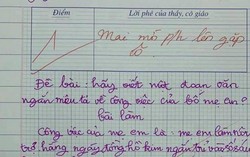 Điểm Lời phê của thầy, cô giáo
1 Mai mố p/h lên gặp
tô
Đề bài: hãy viết một đoạn văn
ngắn miêu tả về công việc của bố mẹ em?
bài làm
Công việc của mẹ em là: mẹ em làm
trở hằng ngày